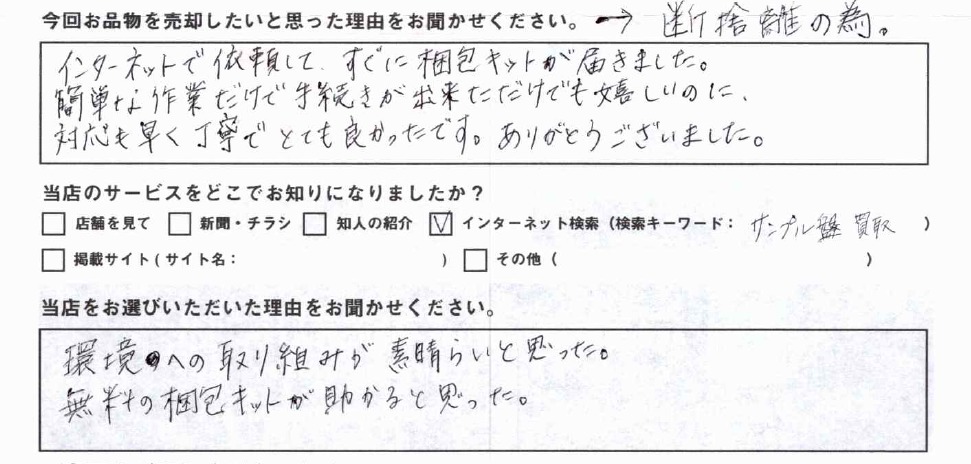 今回お品物を売却したいと思った理由をお聞かせください。→ 断捨離の為。
インターネットで依頼して、すぐに梱包キットが届きました。
簡単な作業だけで手続きが出来ただけでも嬉しいのに、
対応も早く丁寧でとても良かったです。ありがとうございました。
当店のサービスをどこでお知りになりましたか?
□ 店舗を見て □ 新聞・チラシ □ 知人の紹介 ☑ インターネット検索(検索キーワード: サンプル盤 買取 )
□ 掲載サイト(サイト名: ) □ その他( )
当店をお選びいただいた理由をお聞かせください。
環境への取り組みが素晴らいと思った。
無料の梱包キットが助かると思った。